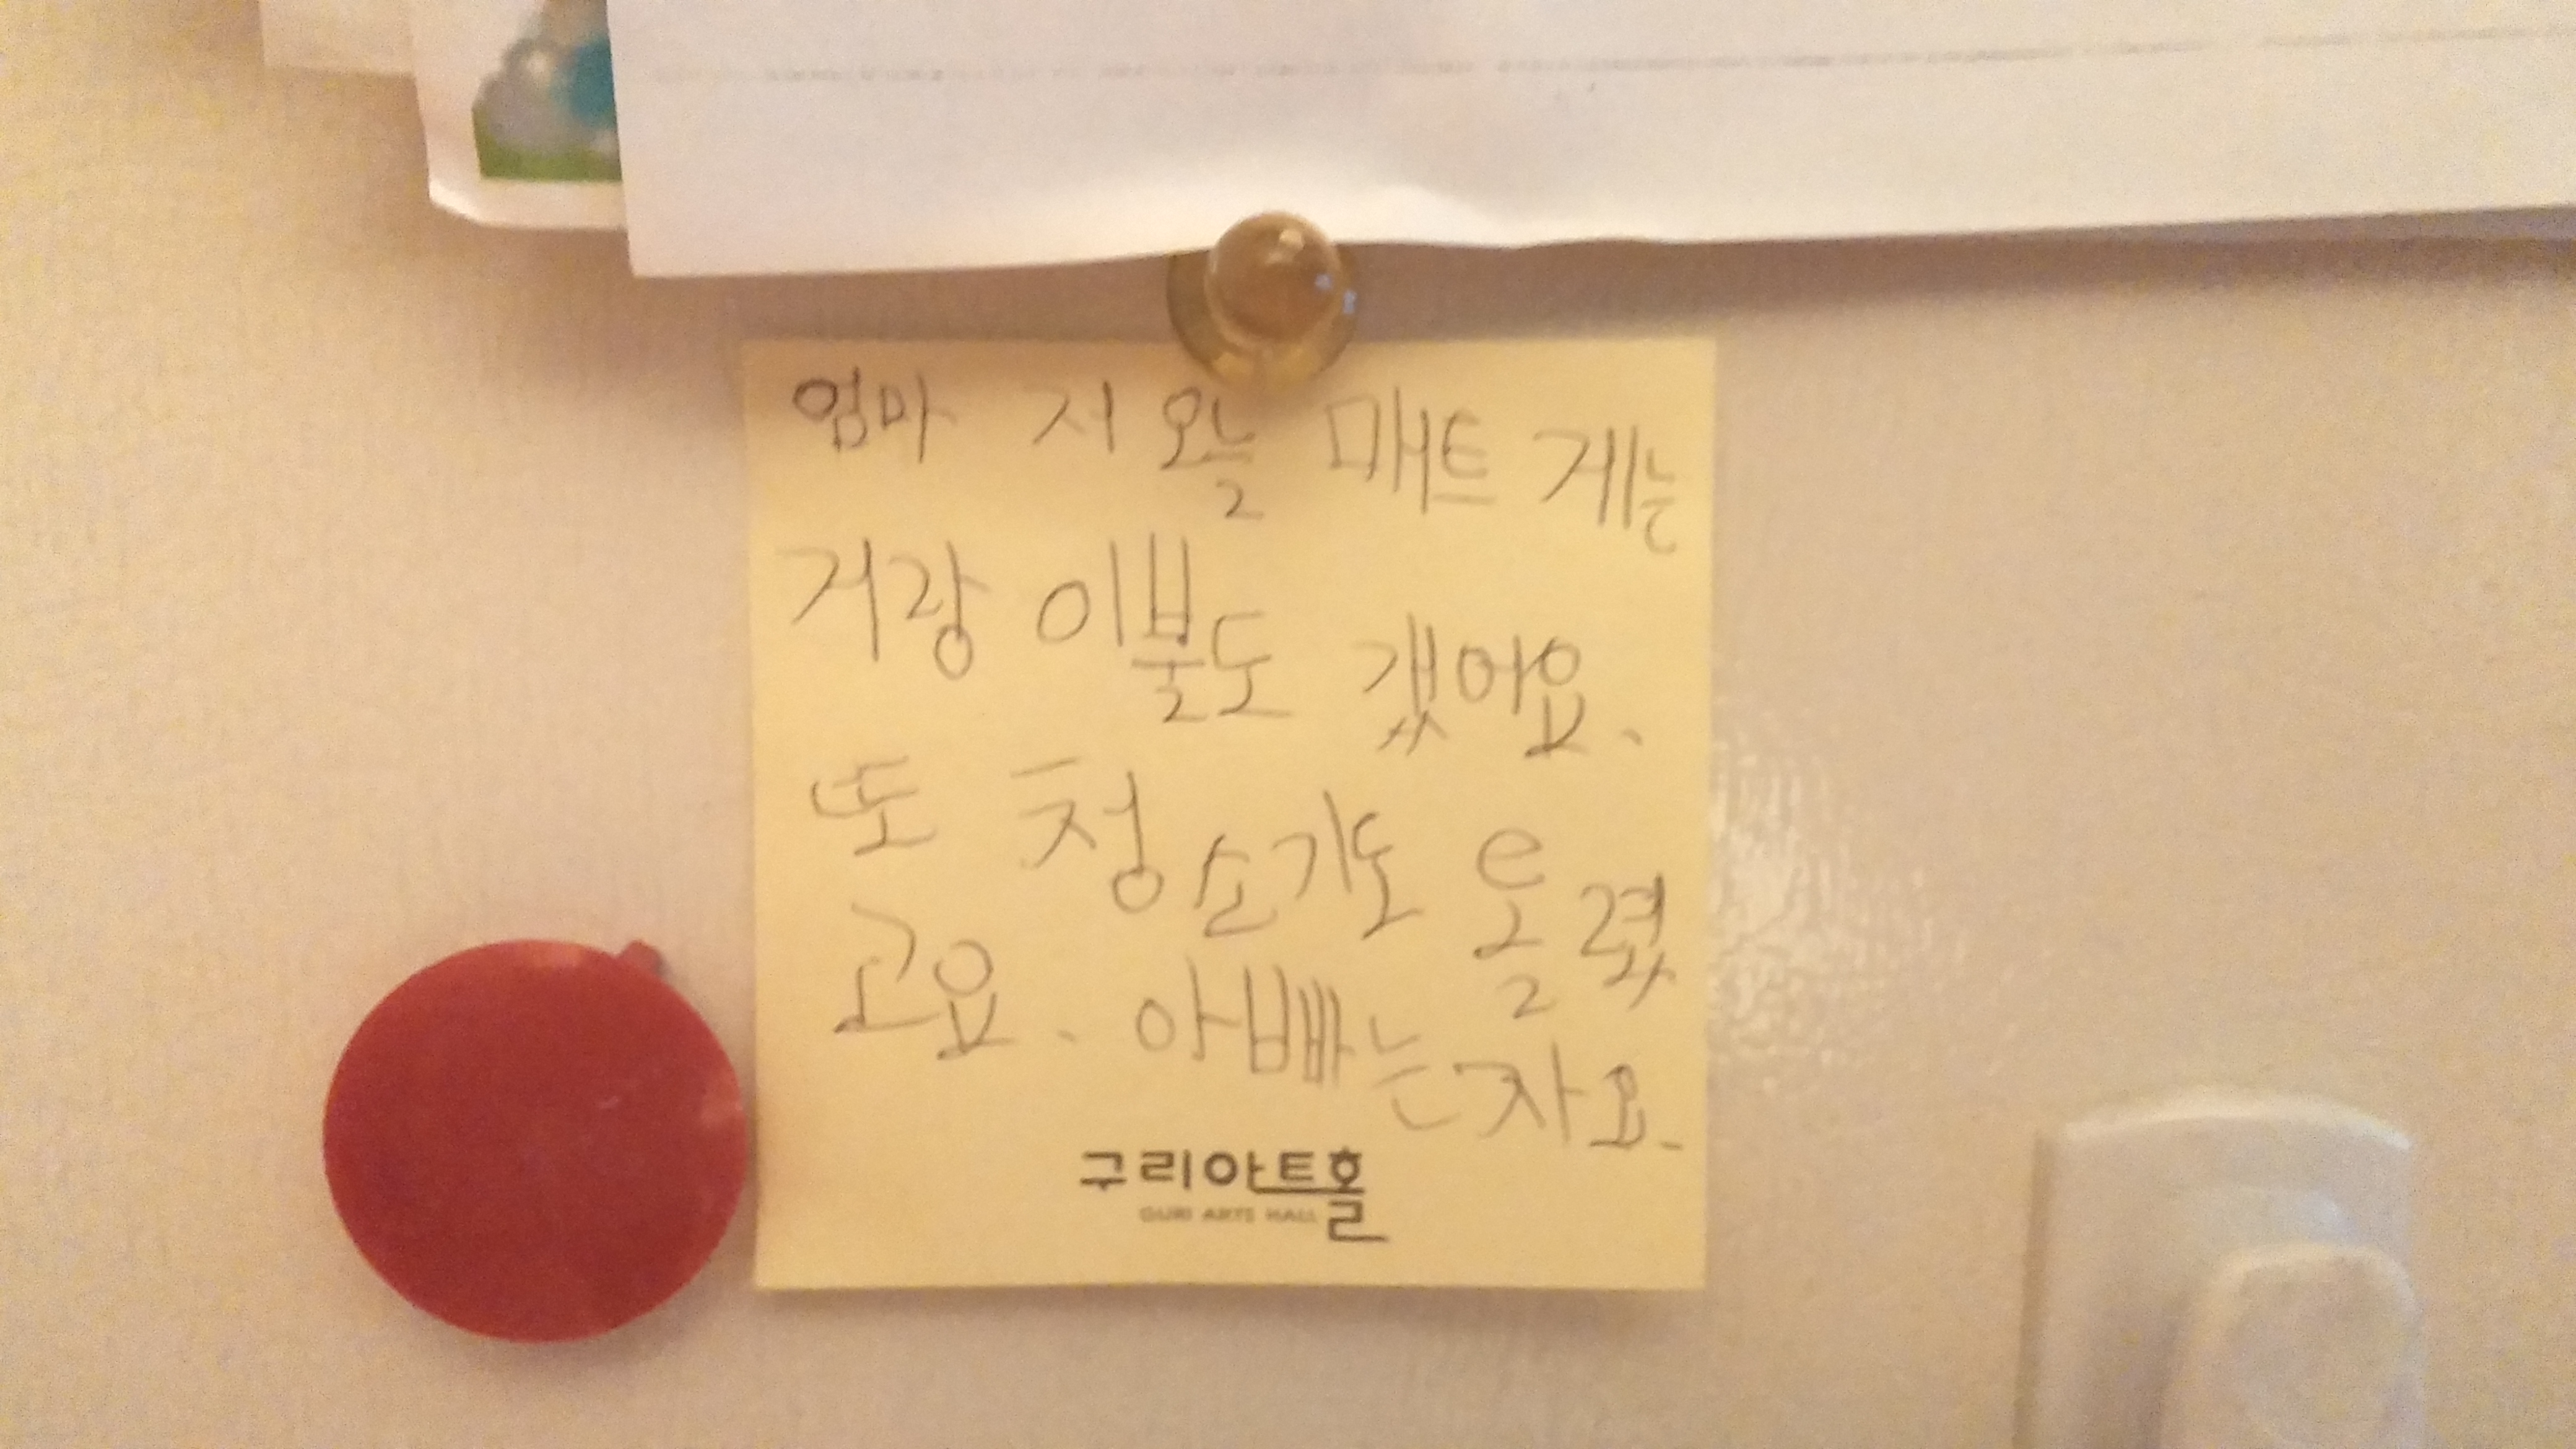 엄마 저 오늘 매트 게는
거랑 이불도 갰어요.
또 청소기도 올렸
고요. 아빠는 자요.
구리아트홀
GURI ARTS HALL